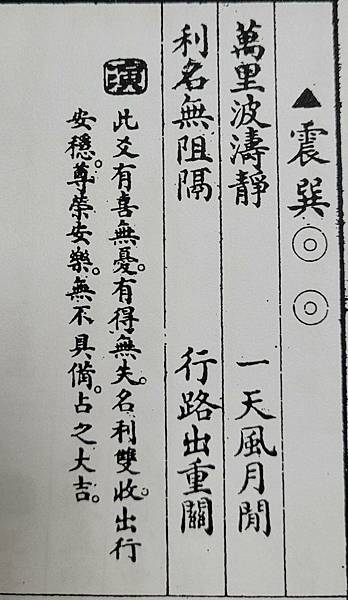 ▲震巽◎◎
萬里波濤靜　一天風月閒
利名無阻隔　行路出重關
演
此爻有喜無憂。有得無失。名利雙收。出行
安穩。尊榮安樂。無不具備。占之大吉。